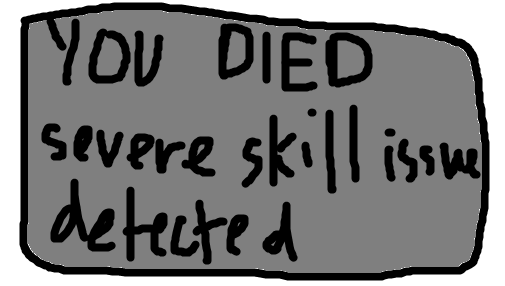 YOU DIED
severe skill issue
detected